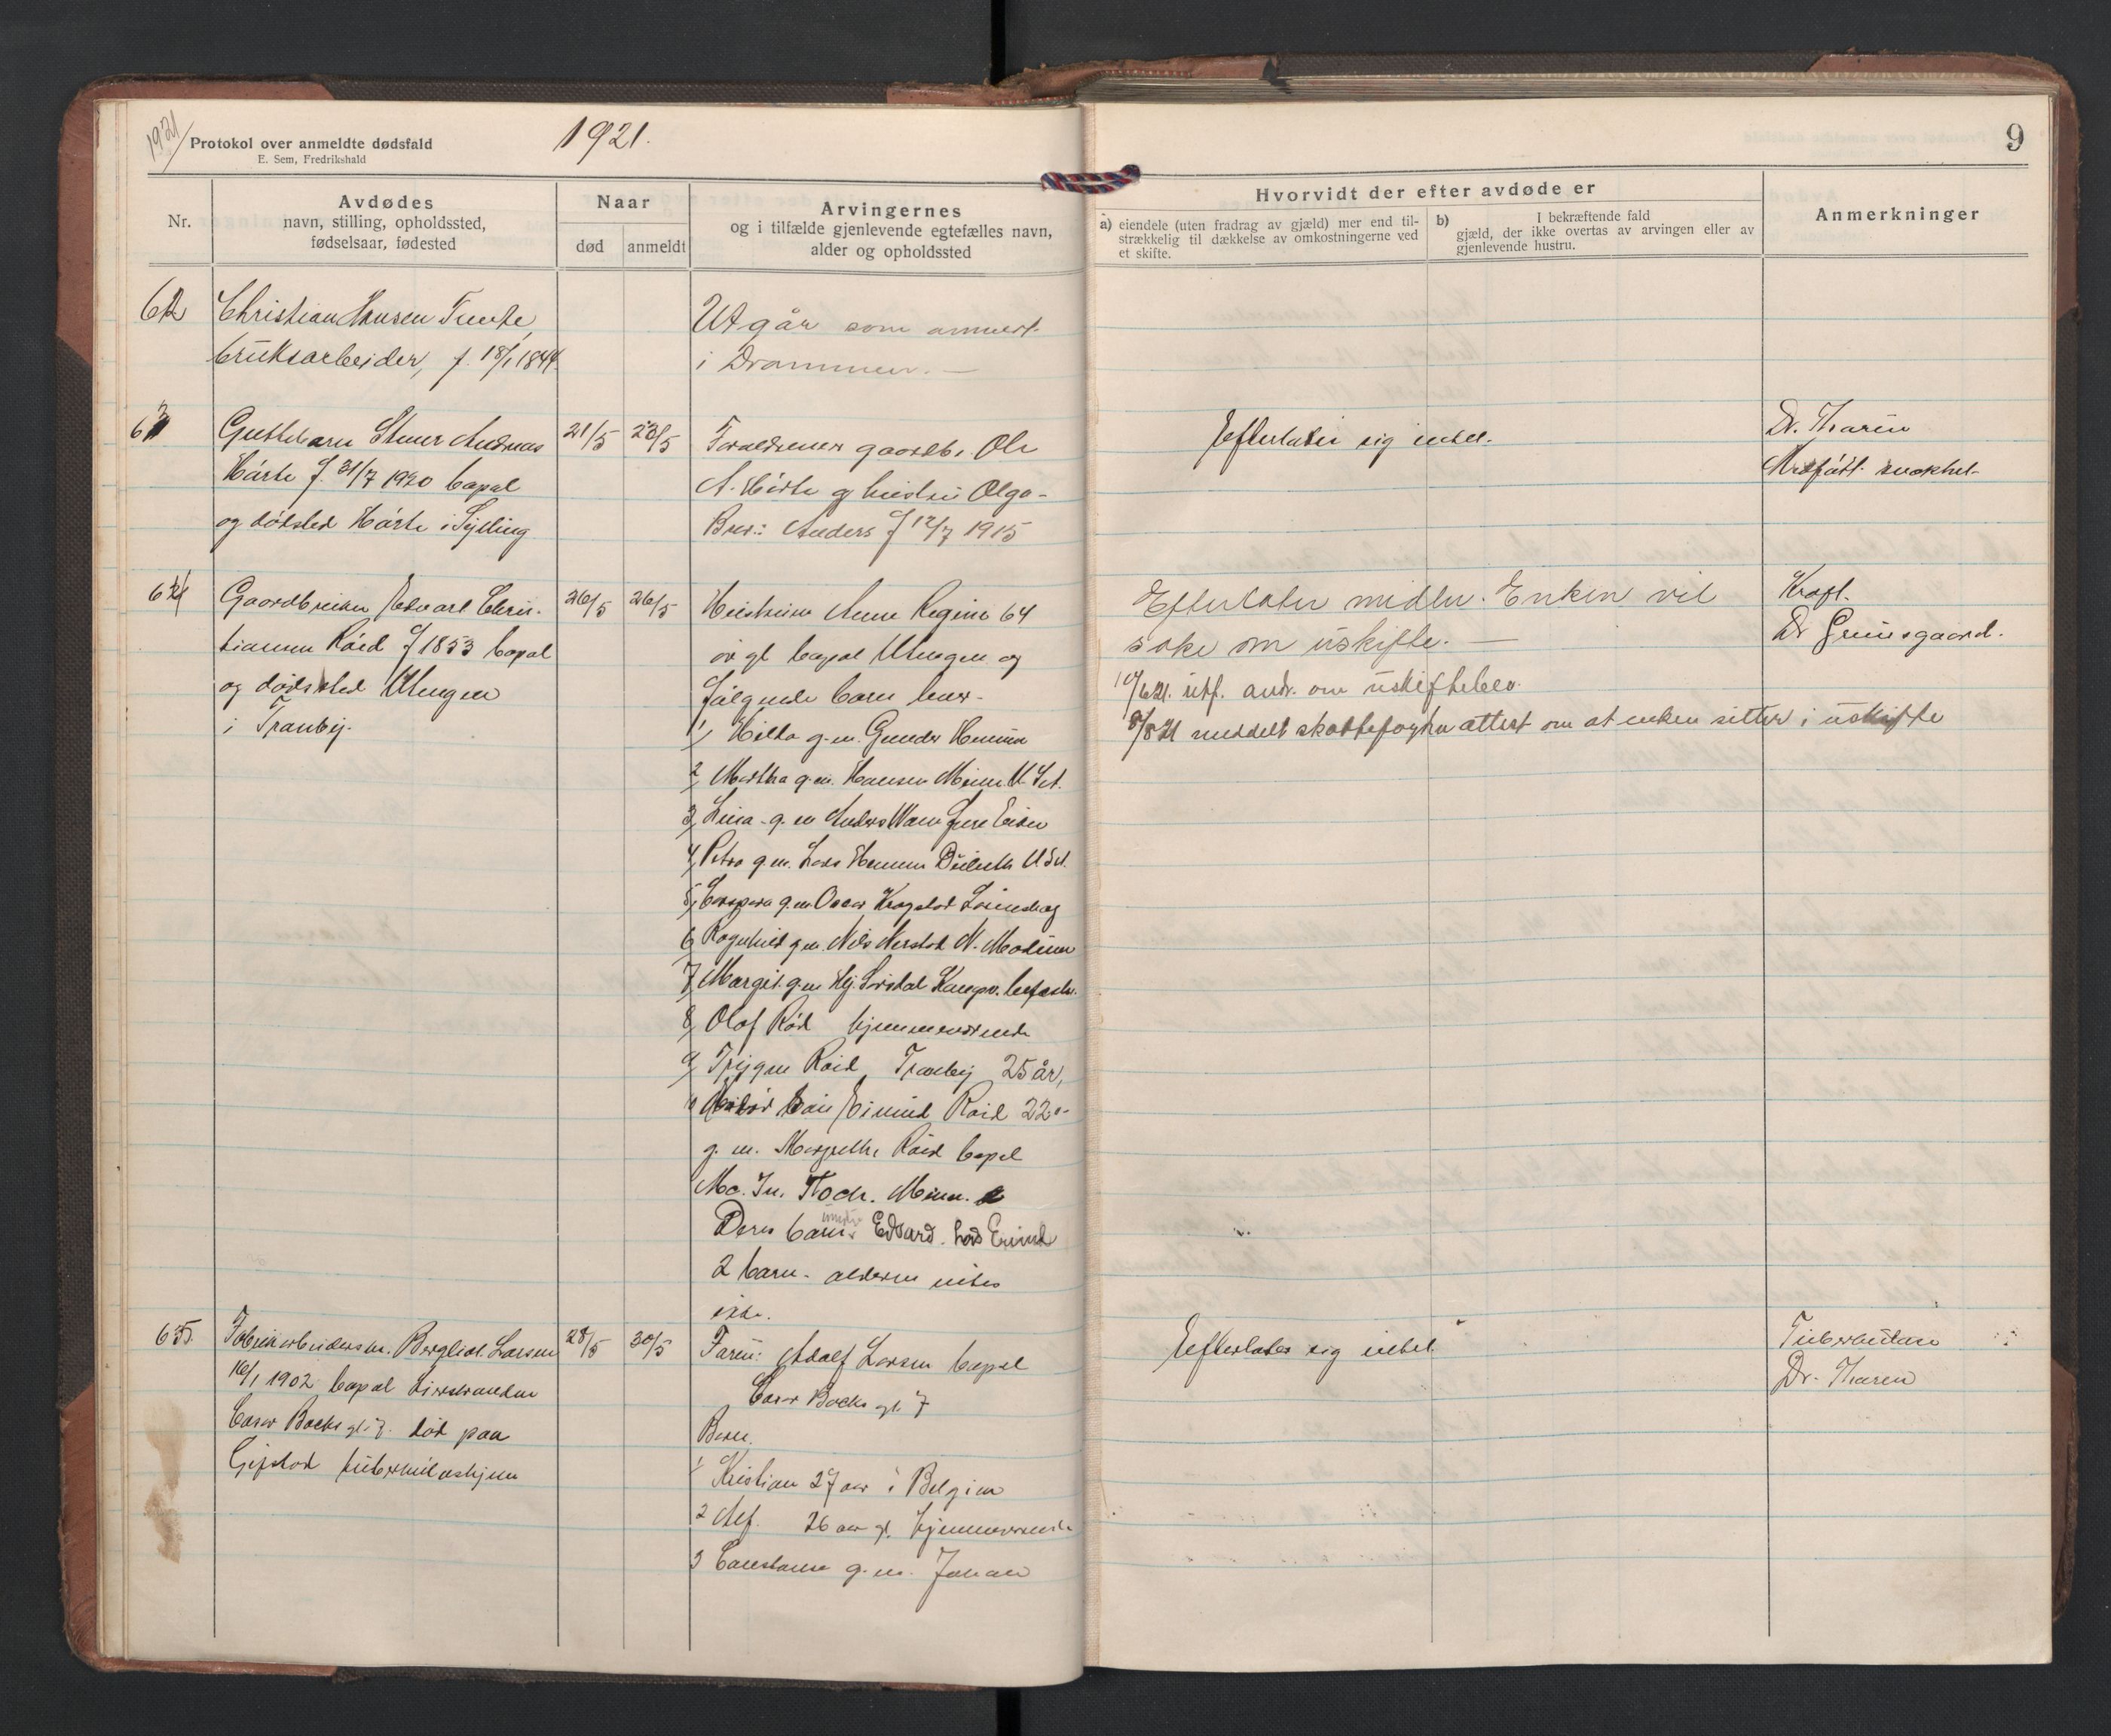 1921
Protokol over anmeldte dødsfald
E. Sem, Fredrikshald
1921.
9
Nr.
Avdødes
navn, stilling, opholdssted,
fødselsaar, fødested
Naar
død
anmeldt
Arvingernes
og i tilfælde gjenlevende egtefælles navn,
alder og opholdssted
Hvorvidt der efter avdøde er
a) eiendele (uten fradrag av gjæld) mer end til-
strækkelig til dækkelse av omkostningerne ved
et skifte.
b) I bekræftende fald
gjæld, der ikke overtas av arvingen eller av
gjenlevende hustru.
Anmerkninger
62
Christian Hansen
bruksarbeider, f. 18/1 1844.
Utgår som anmeldt
i Drammen. —
63
Guttebarn Andreas
Hårte f. 31/7 1920 bopæl
og dødsted Hårte i Sylling
21/5
23/5
Forældrene gaardbr. Ole
A. Hårte og hustru Olga -
Bror: Anders f 12/7 1915
Efterlater sig intet.
Dr. Tharen
Medfødt svakhet
64
Gaardbruker Edvart Chris-
tiansen Röed f 1853 bopæl
og dødssted Utengen
i Tranby.
26/5
26/5
Hustruen Anne Regine 64
år gl bopæl Utengen og
følgende barn
1/ Hilda g.m. Gunder
2/ Martha g.m. Hansen Minn. U. St.
3/ Lina g. m Anders
4/ Petra g.m. Lars Duluth U. St.
5/ g.m Oscar Krogstad
6/ Ragnhild g.m. Nils N. Modum
7/ Margit g.m Hj.
8/ Olaf Röd hjemmeværende
9/ Trygve Röed Tranby 25 år,
10 Eivind Röed 22 a-
g. m. Margrethe Röed bopæl
Minn.
Deres barn: Edvard. Eivind
2 barn - alderen vites
ikke.
Efterlater midler. Enken vil
søke om uskifte. —
10/6 21. utf. andr. om uskiftebev.
8/8 21 meddelt skattefogden attest om at enken sitter i uskifte
Kræft.
Dr Grimsgaard.
65.
Fabrikarbeiderske Bergliot Larsen
16/1 1902 bopæl Lierstranden
død paa
Gifstad tuberkuloshjem
28/5
30/5
Faren: Adolf Larsen bopæl
1/ Kristian 27 aar i Belgien
2 Alf. 26 aar gl. hjemmeværende
3 Constance g.m. Johan
Efterlater sig intet
Tuberkulose
Dr. Tharen